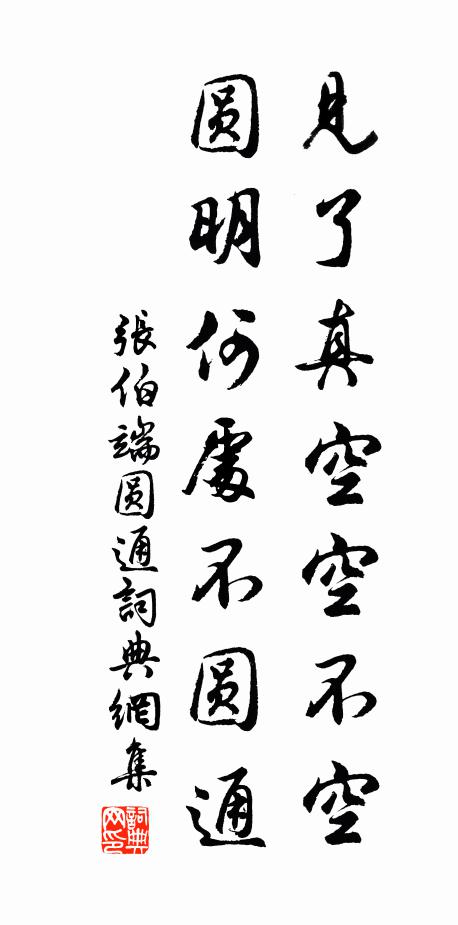 見了真空空不空
圓明何處不圓通
張伯端圓通詞典網集
詞典網印